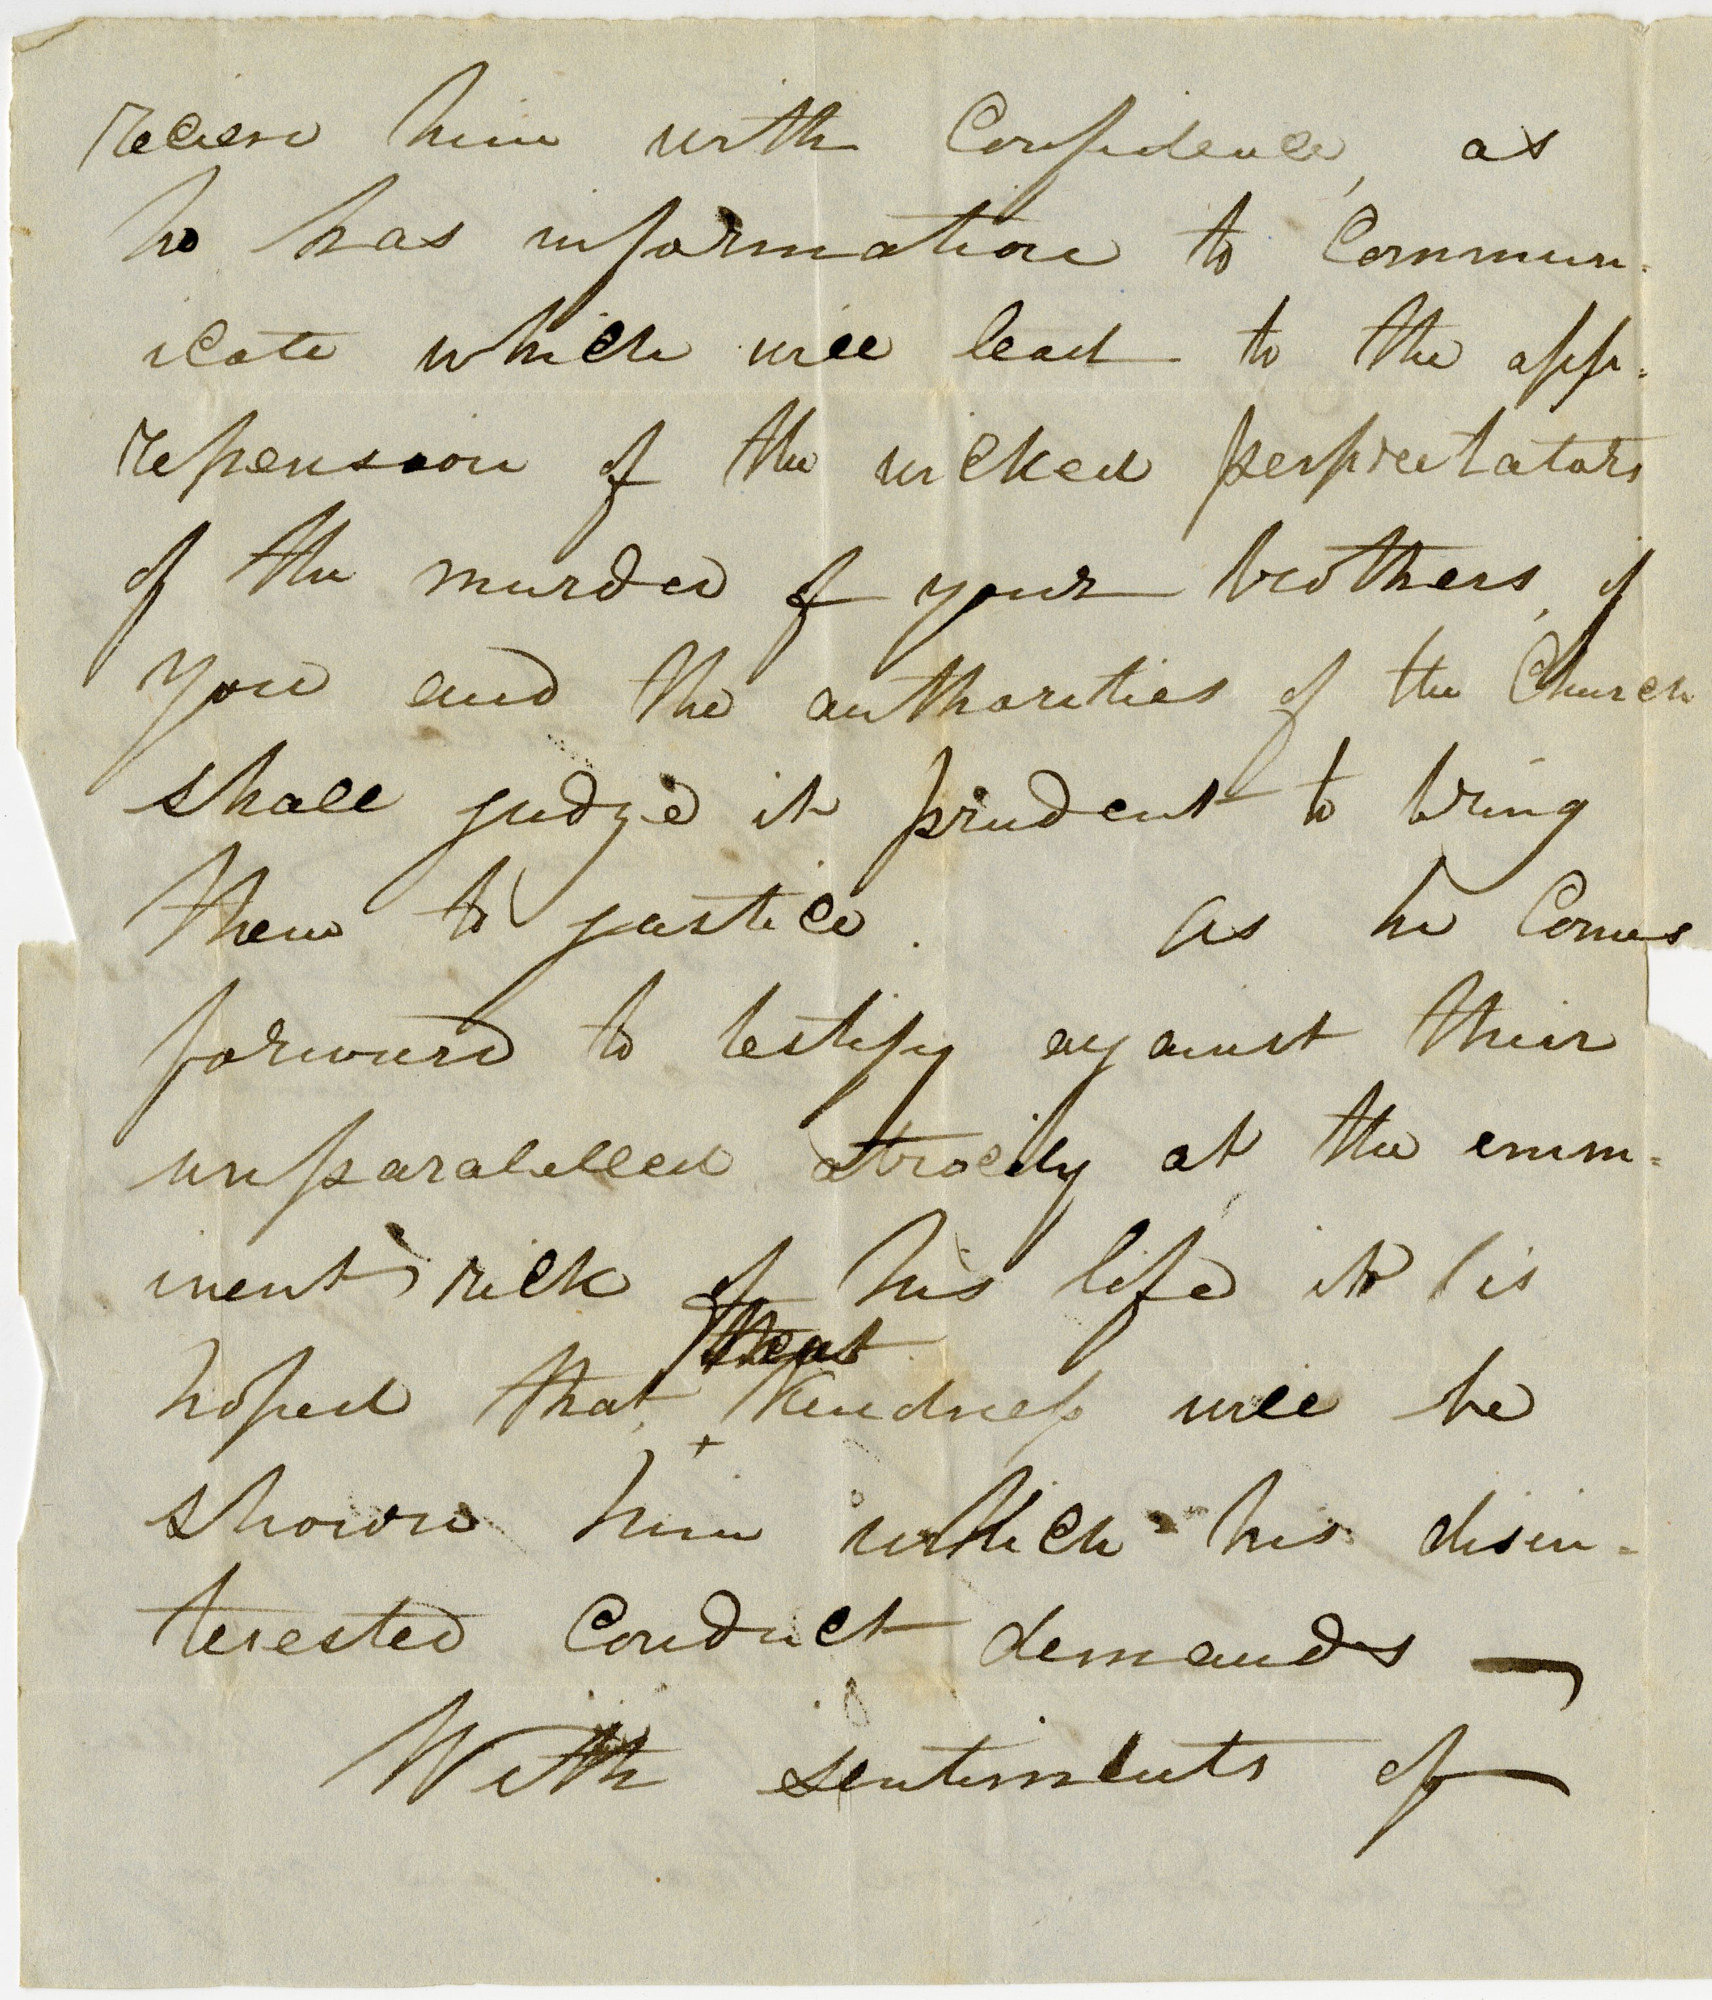 recieve him with Confidence, as
he has information to Commun-
icate which will lead to the app-
rehension of the wicked perpretators
of the murder of your brothers, if
you and the authorities of the Church
shall judge it prudent to bring
them to justice. As he Comes
forward to testify against their
unparalelled atrocity at the emm-
inent risk of his life it is
hoped that that kindness will be
shown him which his disin-
terested Conduct demands —
With sentiments of